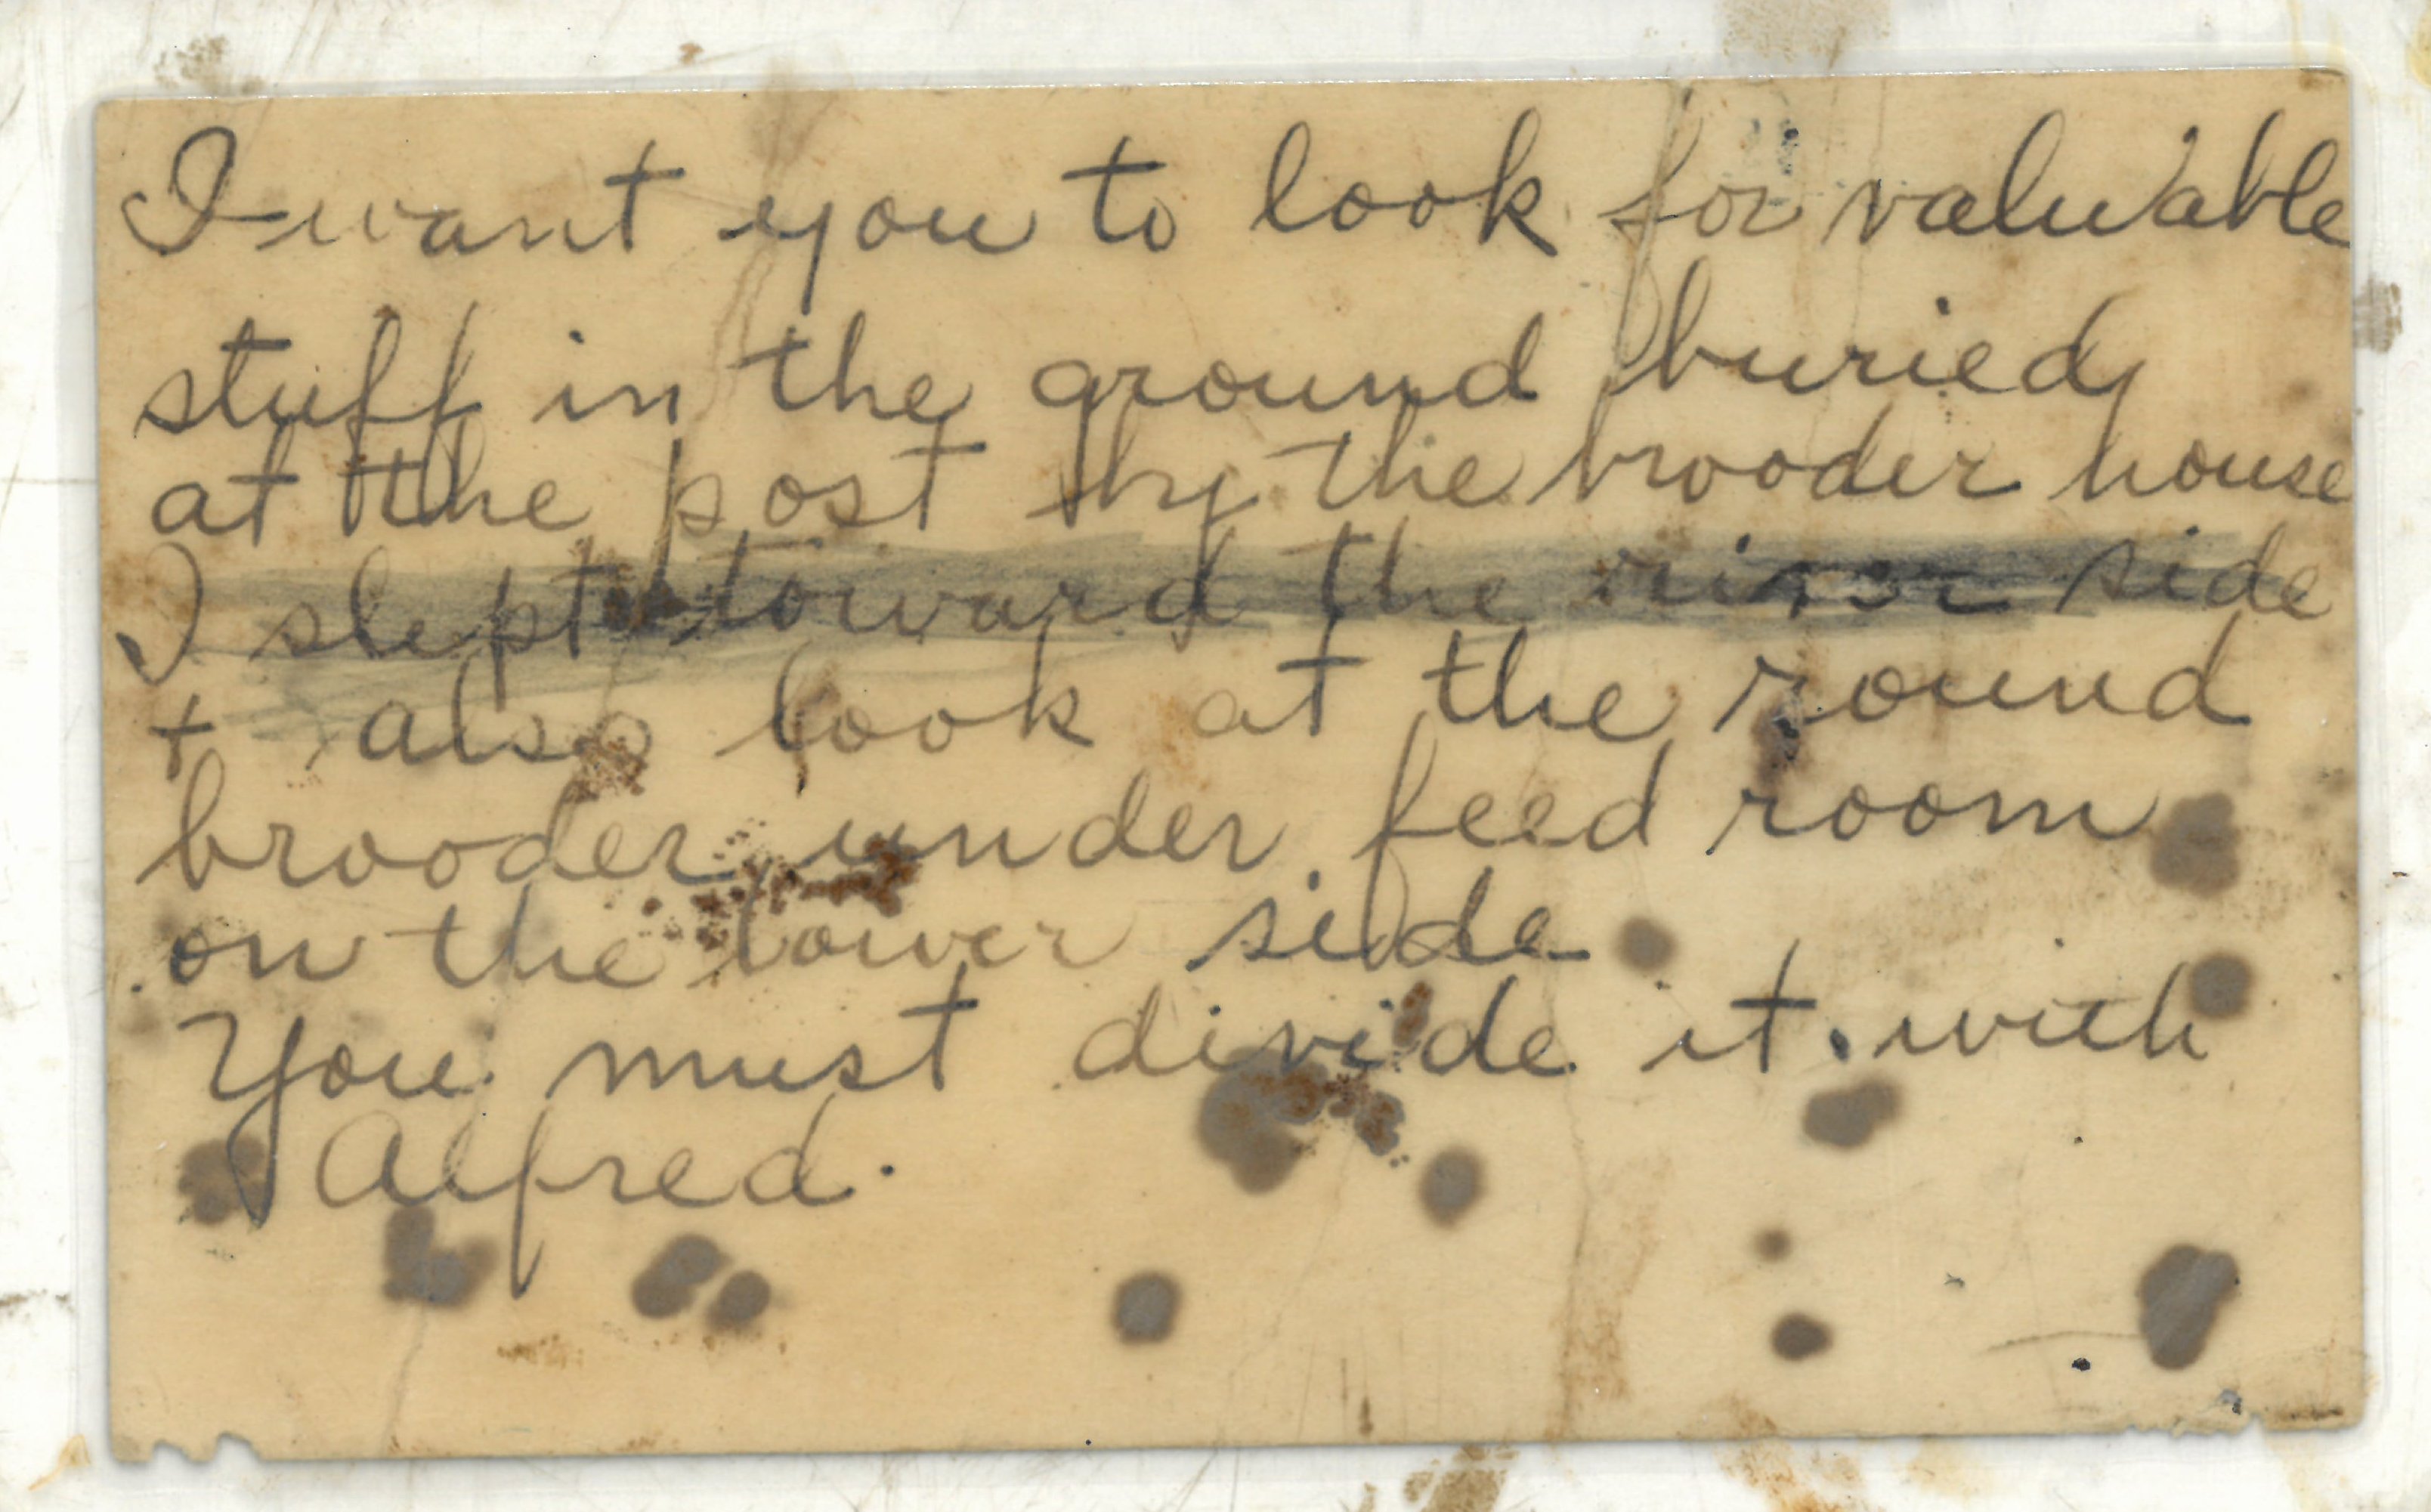 I want you to look for valuable
stuff in the ground buried
at the post by the brooder house
I slept toward the river side
+ also look at the round
brooder under feed room
on the lower side
You must divide it with
Alfred.